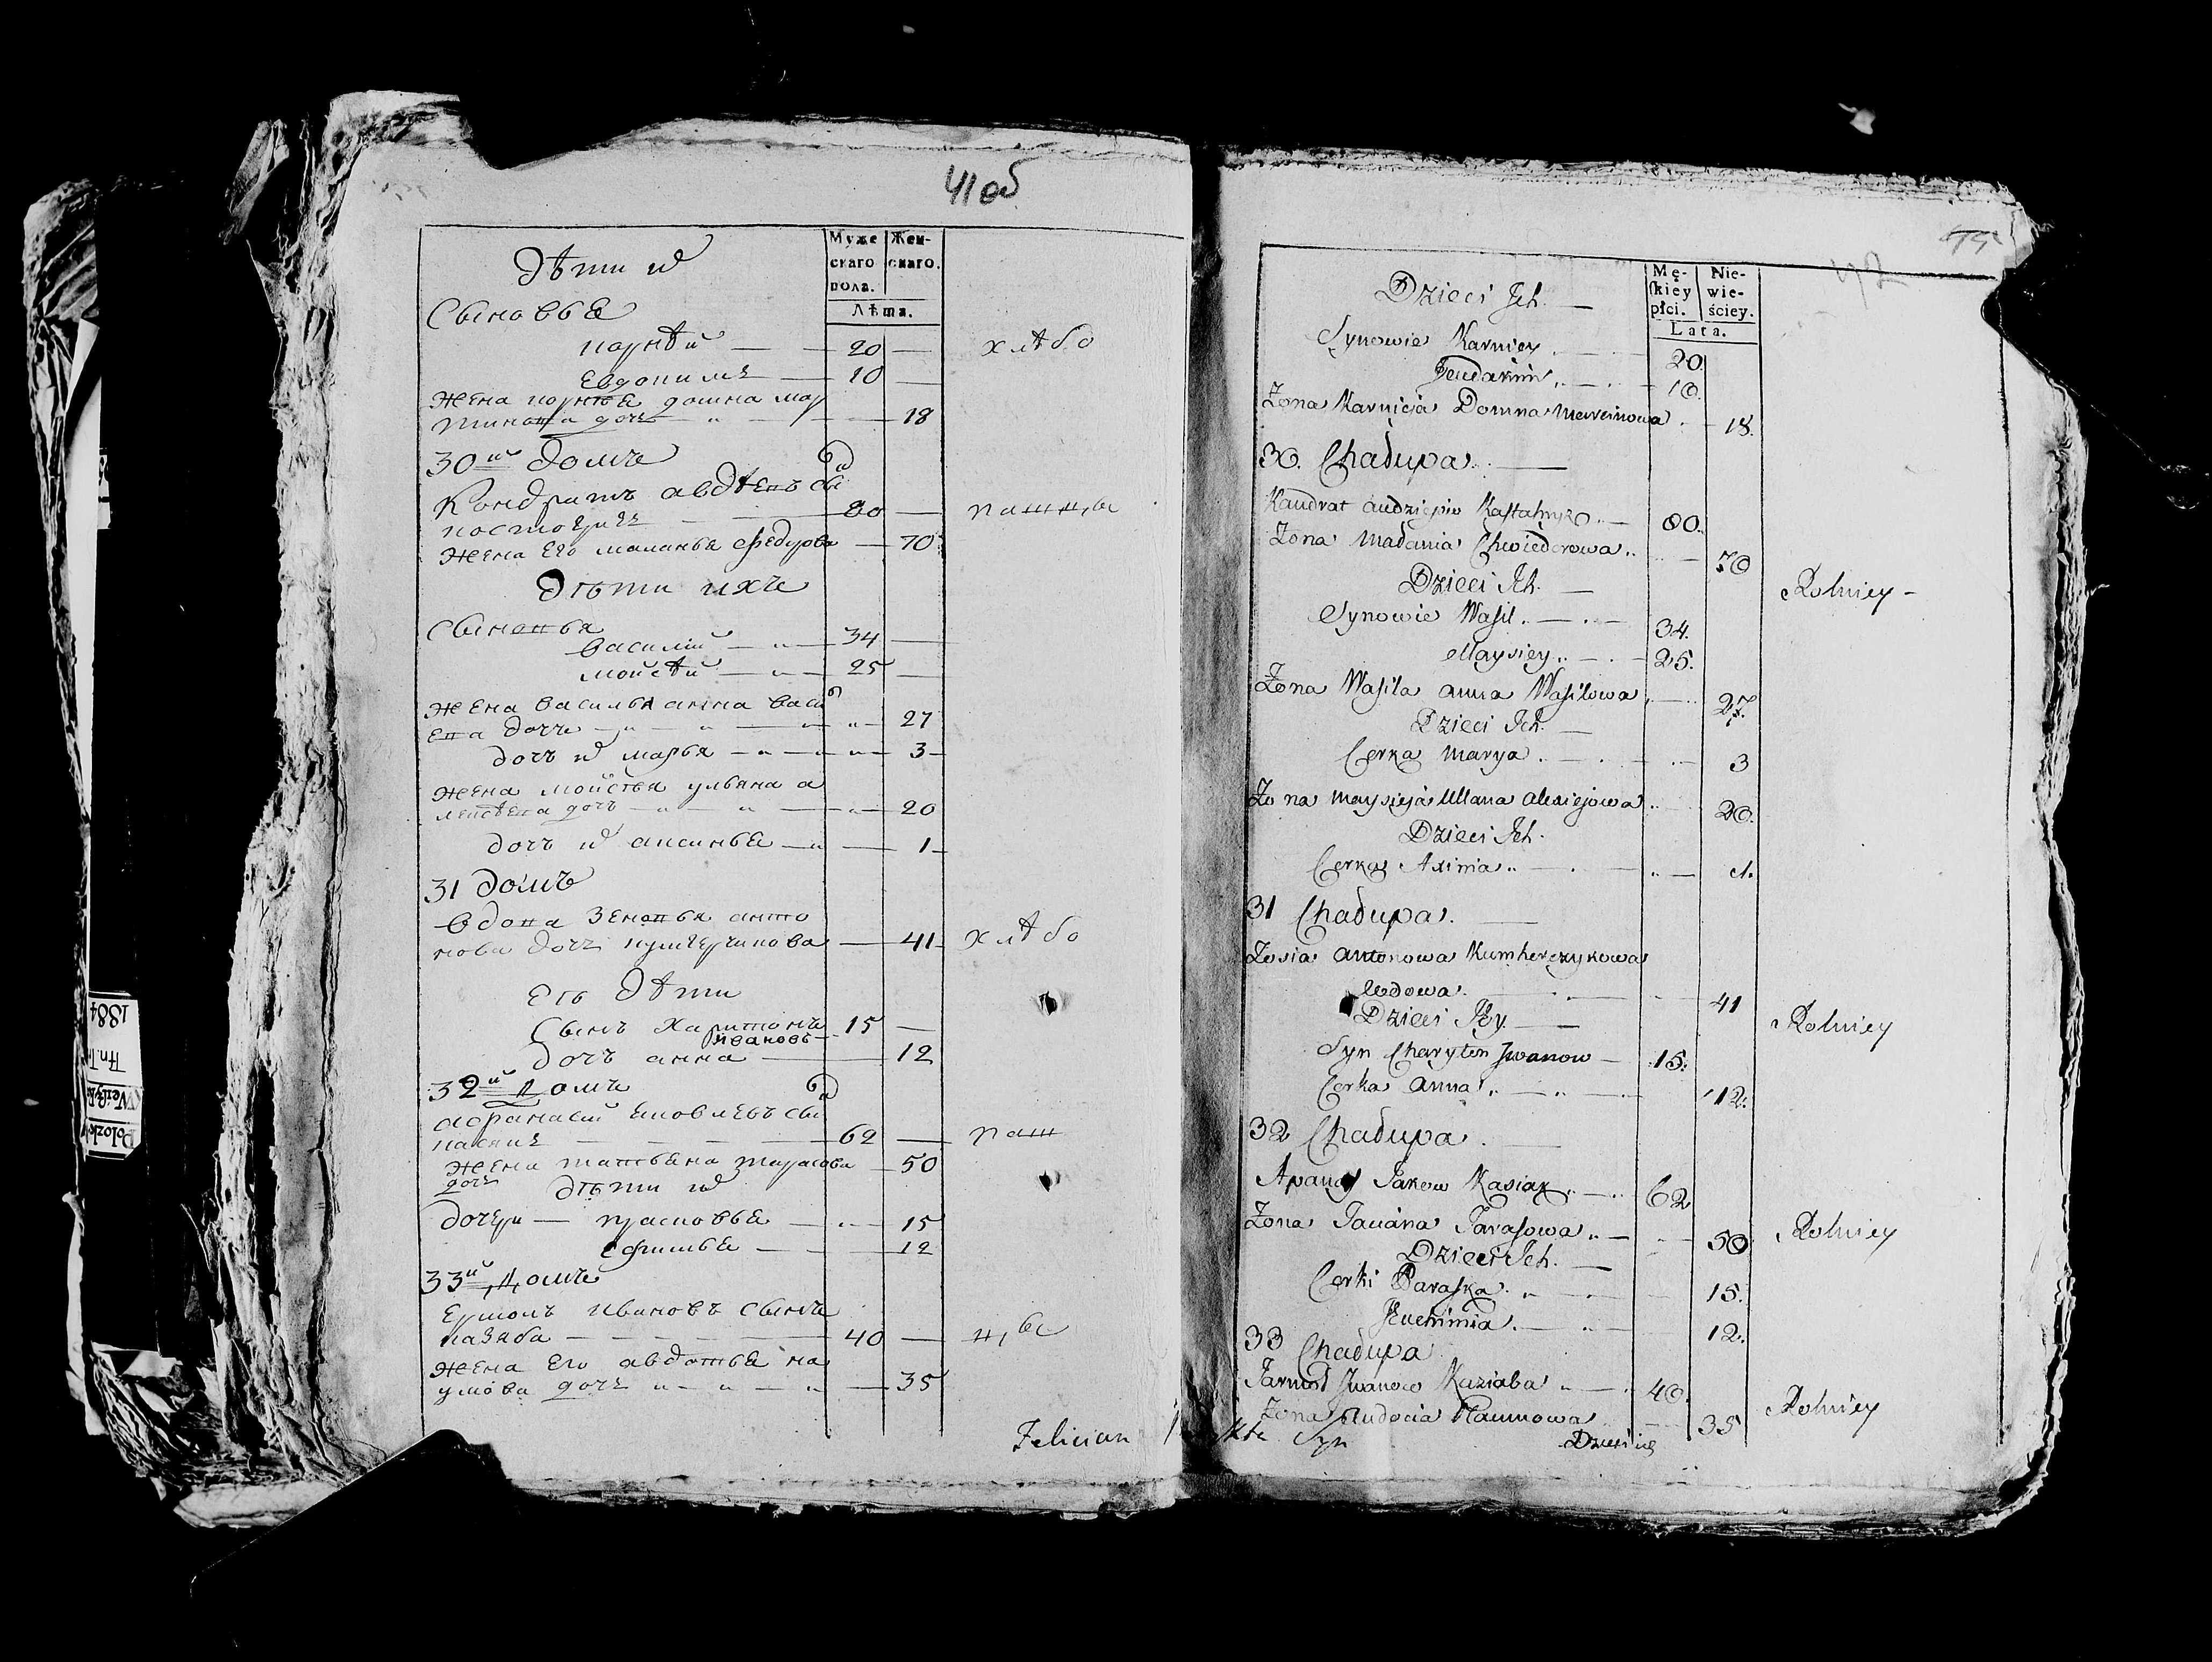 41 об
Муже
скаго
пола.
Жен-
скаго.
Лѣта.
Дѣти и
Сыновьѣ
корнѣй — 20 —
Евдокимъ — 10 —
Жена корнѣѣ домна мар
тинова дочь — 18
хлѣбо
30й домъ
Кондратъ авдѣевъ сы
80 —
пашцы
Жена Его маланьѣ Федурова — 70
Дѣти ихъ
Сыновья
Василій — 34 —
мойсѣй — 25 —
Жена Васильѧ анна Васи
ева дочь — 27
дочь и марья — 3
Жена мойсѣѧ ульяна а
лексѣева дочь — 20
дочь и аксиньѣ — 1
31 домъ
вдова Зеновья анто
нова дочь кумгерчикова — 41
хлѣбо
Его дѣти
Сынъ Харитонъ 15 —
Ивановъ
дочь анна — 12
32й Домъ
Афанасій Яковлевъ сы
касякъ — 62 —
паш
Жена татьѣна тарасова — 50
дочь Дѣти и
дочери — прасковьѣ — 15
Ефимьѣ — 12
33й Домъ
Ермолъ Ивановъ сынъ
казяба — 40 —
цы
Жена Его авдотьѣ на
умова дочь — 35
Felician
42
Mę-
skiey
płci.
Nie-
wie-
ściey.
Lata.
Dzieci Ich. —
Synowie Karniey 20.
Jeudakim 10.
Zona Karnieja Domna Marcinowa 18.
30. Chadupa. —
Kandrat Audziejew 80.
Zona Madania Chwiedorowa 70
Dzieci Ich. —
Rolniey -
Synowie Wasil 34.
Maysiey 25.
Zona Wasila Anna Wasilowa 27.
Dzieci Ich. —
Cerka Marya 3
Zona Maysieja Ullana Alexiejowa 20.
Dzieci Ich.
Cerka Axinia 1.
31 Chadupa. —
Zosia Antonowa Kumherczykowa
Wdowa. 41
Dzieci Jey. —
Rolniey
Syn Charyton Iwanow — 15.
Cerka Anna 12.
32 Chadupa. —
Apanas Jakow Kasiak 62
Zona Taciana Tarasowa 50
Rolniey
Dzieci Ich. —
Cerki Paraska 15.
Jeuchimia. 12.
33 Chadupa
Jarmol Iwanow Kaziaba 40.
Zona Audocia Naumowa 35
Rolniey
Syn